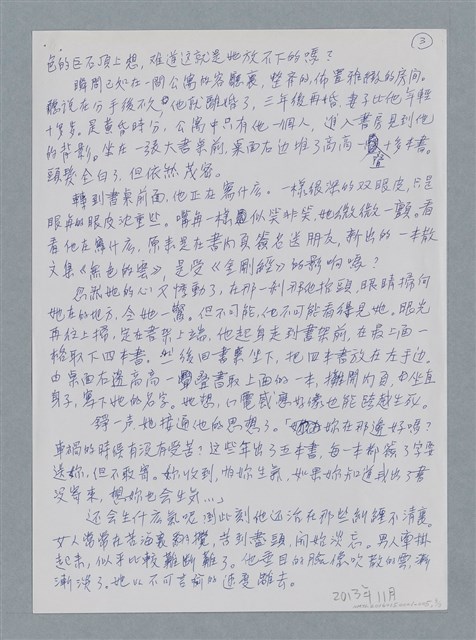 3
色的巨石頂上想，难道这就是她放不下的嗎？
瞬間已如在一間公寓的客廳裏，整齊的佈置雅緻的房间。
聽説在分手後不久，他就離婚了，三年後再婚，妻子比他年輕
十多岁。是黄昏時分，公寓中只有他一個人，進入書房見到他
的背影。坐在一張大書桌前，桌面右边堆了高高一疊十多本書。
頭髮全白了，但依然茂密。
轉到書桌前面，他正在寫什么。一樣很深的双眼皮，只是
眼角的眼皮沈重些。嘴角一樣似笑非笑，她微微一顫。看
看他在寫什么，原來是在書内頁簽名送朋友，新出的一本散
文集《無色的雲》，是受《金剛經》的影响嗎？
忽然她的心又悸動了，在那一刹那他抬頭，眼睛掃向
她在的地方，令她一驚。但不可能，他不可能看得見她。眼光
再往上掃，定在書架上端，他起身走到書架前，在最上面一
格取下四本書。然後回書桌坐下，把四本書放在左手边。
由桌面右邊高高一疊書取上面的一本，攤開内頁，坐直
身子，寫下她的名字。她想，心電感應好像也能跨越生死。
錚一声她接通他的思想了。「妳在那邊好嗎？
車禍的時候有没有受苦？这些年出了五本書，每一本都簽了字要
送妳，但不敢寄。妳收到，怕妳生氣，如果妳知道我出了書
没寄來，想妳也会生气…」
还会生什么氣呢，到此刻他还活在那些糾纏不清裏。
女人常常在苦海裏翻攪，苦到盡頭，開始淡忘。男人牽掛
起來，似乎比較難斷難了。他垂目的臉像吹散的雲，漸
漸淡了。她以不可言喻的速度離去。
2013年11月